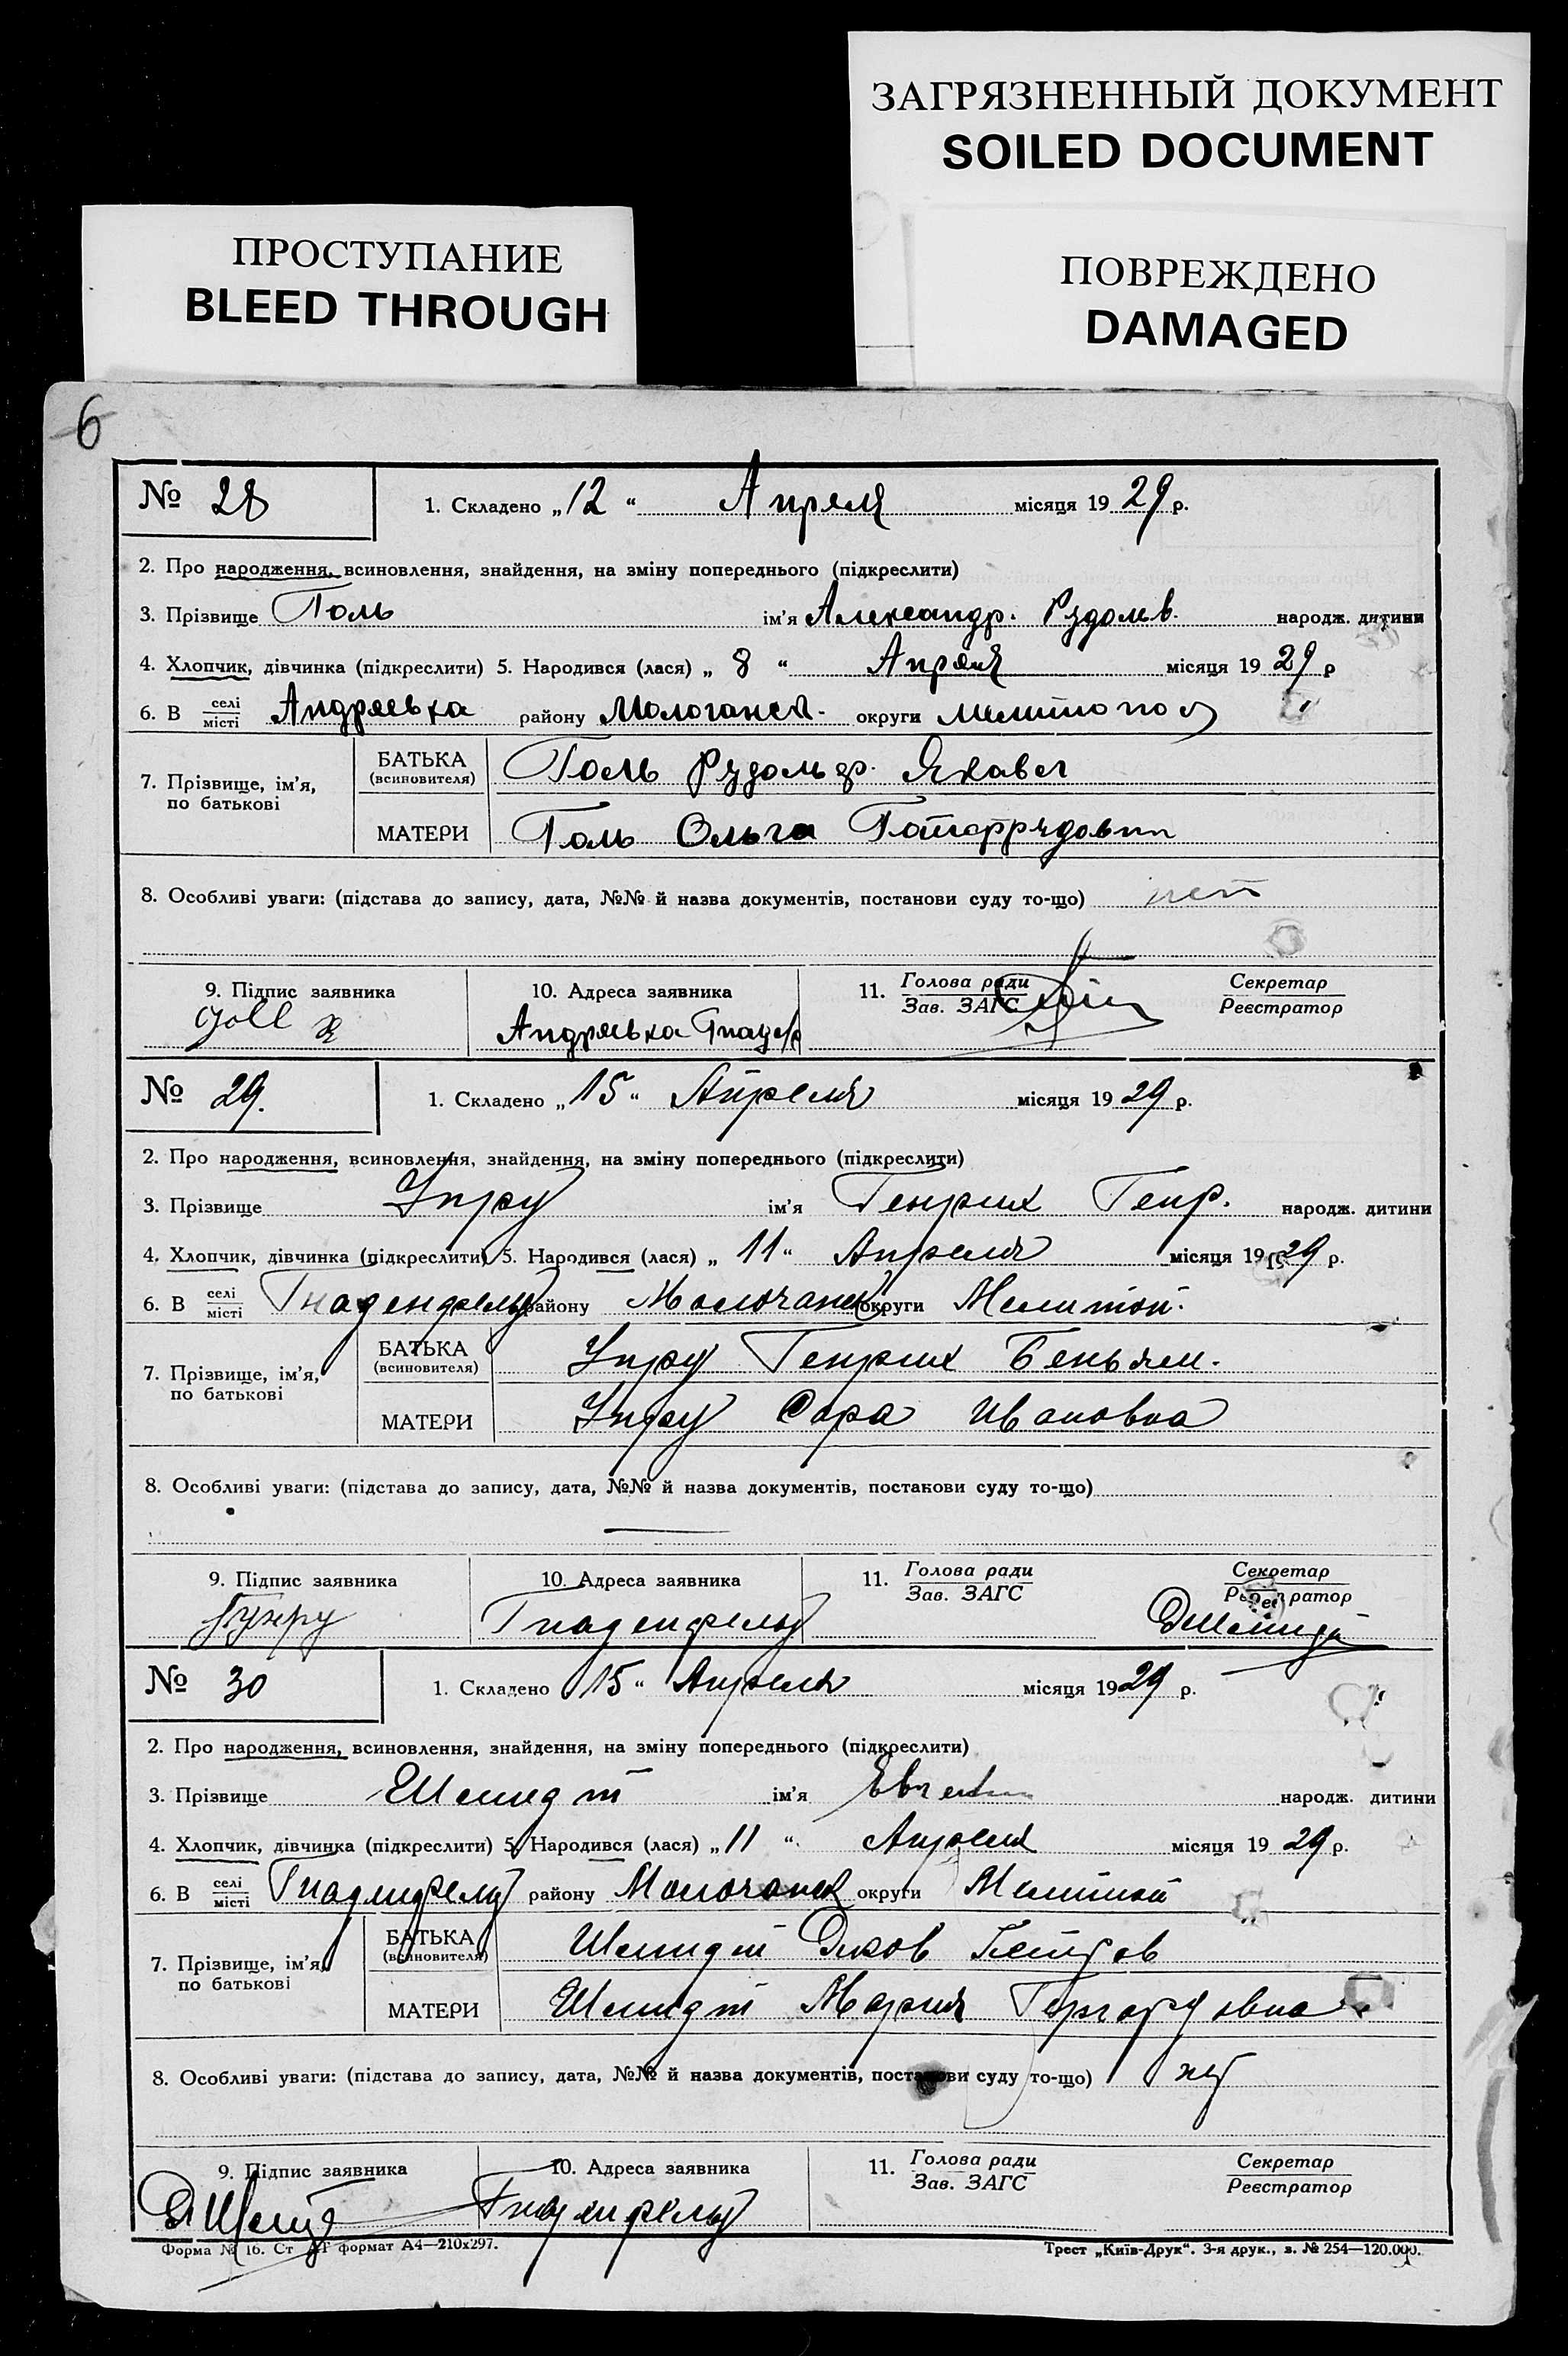 ЗАГРЯЗНЕННЫЙ ДОКУМЕНТ
SOILED DOCUMENT
ПРОСТУПАНИЕ
BLEED THROUGH
ПОВРЕЖДЕНО
DAMAGED
6
№ 28 1. Складено „12“ Апреля місяця 1929 р.
2. Про народження, всиновлення, знайдення, на зміну попереднього (підкреслити)
3. Прізвище Голь ім'я Александр. Рудольв. народж. дитини
4. Хлопчик, дівчинка (підкреслити) 5. Народився (лася) „8“ Апреля місяця 1929 р
6. В селі/місті Андреевка району округи Мелитопол
7. Прізвище, ім'я, по батькові БАТЬКА (всиновителя) Голь Рудольф. Якавл
МАТЕРИ Голь Ольга Готфридовн
8. Особливі уваги: (підстава до запису, дата, №№ й назва документів, постанови суду то-що) нет
9. Підпис заявника 10. Адреса заявника 11. Голова ради/Зав. ЗАГС Секретар/Реєстратор
Goll Андреевка
№ 29. 1. Складено „15“ Апреля місяця 1929 р.
2. Про народження, всиновлення, знайдення, на зміну попереднього (підкреслити)
3. Прізвище Унру ім'я Генрих Генр. народж. дитини
4. Хлопчик, дівчинка (підкреслити) 5. Народився (лася) „11“ Апреля місяця 1929 р.
6. В селі/місті Гнаденфельд району Молочанск округи Мелитоп.
7. Прізвище, ім'я, по батькові БАТЬКА (всиновителя) Унру Генрих Беньям.
МАТЕРИ Унру Сара Ивановна
8. Особливі уваги: (підстава до запису, дата, №№ й назва документів, постанови суду то-що)
9. Підпис заявника 10. Адреса заявника 11. Голова ради/Зав. ЗАГС Секретар/Реєстратор
Гунру Гнаденфельд
№ 30 1. Складено „15“ Апреля місяця 1929 р.
2. Про народження, всиновлення, знайдення, на зміну попереднього (підкреслити)
3. Прізвище Шмидт ім'я народж. дитини
4. Хлопчик, дівчинка (підкреслити) 5. Народився (лася) „11“ Апреля місяця 1929 р.
6. В селі/місті Гнаденфельд району Молочанск округи Мелитоп
7. Прізвище, ім'я, по батькові БАТЬКА (всиновителя) Шмидт Яков Петров
МАТЕРИ Шмидт Мария Гергардовна
8. Особливі уваги: (підстава до запису, дата, №№ й назва документів, постанови суду то-що) нет
9. Підпис заявника 10. Адреса заявника 11. Голова ради/Зав. ЗАГС Секретар/Реєстратор
Гнаденфельд
Форма № 16. Ст формат А4—210х297. Трест „Київ-Друк“. 3-я друк., з. № 254—120.000.